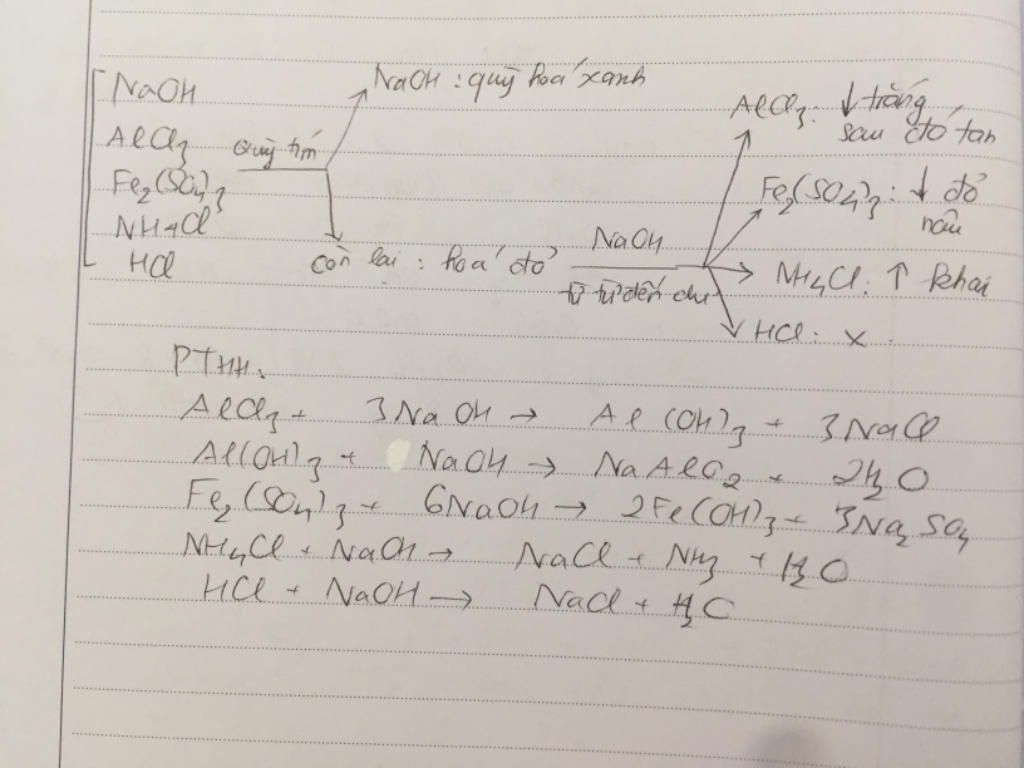 NaOH
AlCl3
Fe2(SO4)3
NH4Cl
HCl
Quỳ tím
NaOH : quỳ hoá xanh
còn lại : hoá đỏ
NaOH
từ từ đến dư
AlCl3 : ↓ trắng
sau đó tan
Fe2(SO4)3 : ↓ đỏ
nâu
NH4Cl : ↑ khai
HCl : x
PTHH.
AlCl3 + 3NaOH → Al(OH)3 + 3NaCl
Al(OH)3 + NaOH → NaAlO2 + 2H2O
Fe2(SO4)3 + 6NaOH → 2Fe(OH)3 + 3Na2SO4
NH4Cl + NaOH → NaCl + NH3 + H2O
HCl + NaOH → NaCl + H2O